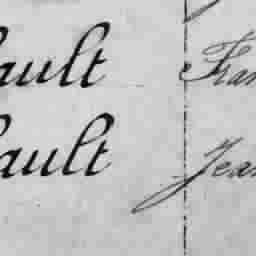 ault Fran
ault Jean